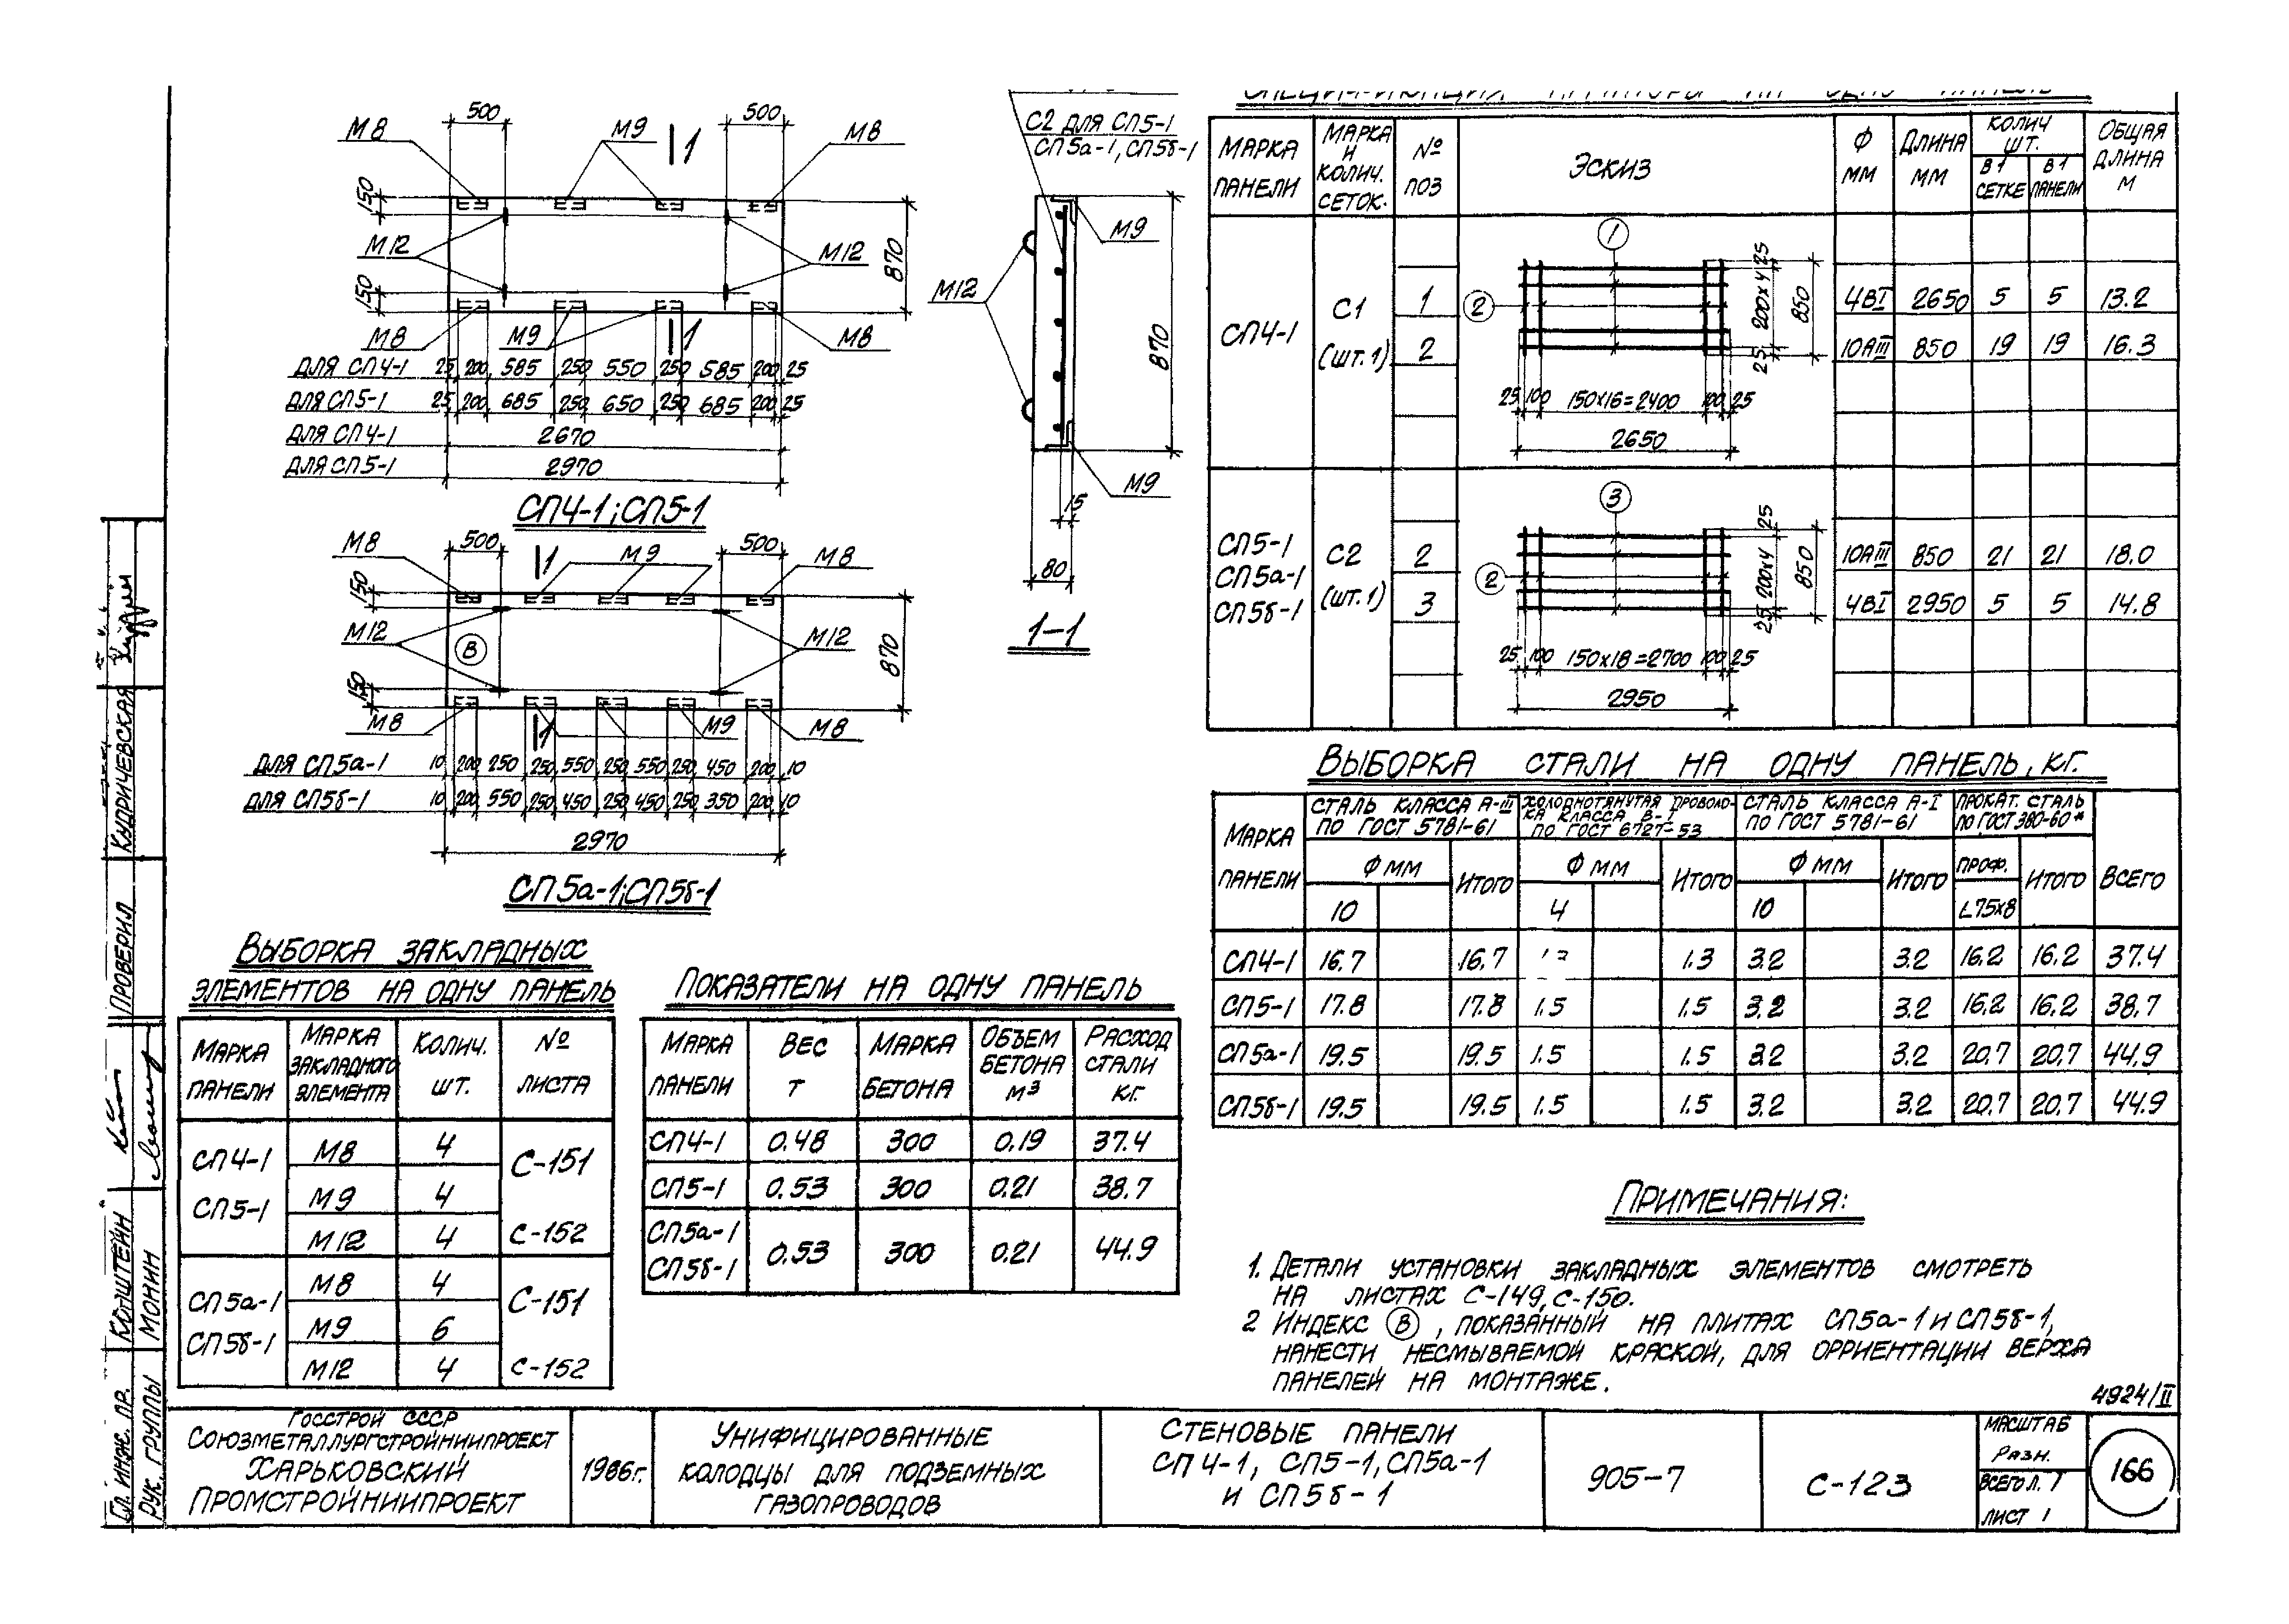 500
500
М8
М9
1
М8
150
М12
М12
870
150
М8
М9
1
М8
ДЛЯ СП4-1 25 200 585 250 550 250 585 200 25
ДЛЯ СП5-1 25 200 685 250 650 250 685 200 25
ДЛЯ СП4-1 2670
ДЛЯ СП5-1 2970
СП4-1; СП5-1
500
500
М8
1
М9
М8
150
М12
В
М12
870
150
М8
1
М9
М8
ДЛЯ СП5а-1 10 200 250 250 550 250 550 250 450 200 10
ДЛЯ СП5б-1 10 200 550 250 450 250 450 250 350 200 10
2970
СП5а-1; СП5б-1
С2 ДЛЯ СП5-1
СП5а-1, СП5б-1
М9
М12
870
М9
15
80
1-1
СПЕЦИФИКАЦИЯ АРМАТУРЫ НА ОДНУ ПАНЕЛЬ
МАРКА ПАНЕЛИ
МАРКА И КОЛИЧ. СЕТОК.
№ ПОЗ
ЭСКИЗ
Ф ММ
ДЛИНА ММ
КОЛИЧ ШТ.
В 1 СЕТКЕ
В 1 ПАНЕЛИ
ОБЩАЯ ДЛИНА М
СП4-1
С1 (ШТ.1)
1 4ВI 2650 5 5 13.2
2 10АIII 850 19 19 16.3
1
2
25 200х4 25
850
25 100 150х16=2400 100 25
2650
СП5-1
СП5а-1
СП5б-1
С2 (ШТ.1)
2 10АIII 850 21 21 18.0
3 4ВI 2950 5 5 14.8
3
2
25 200х4 25
850
25 100 150х18=2700 100 25
2950
ВЫБОРКА СТАЛИ НА ОДНУ ПАНЕЛЬ, КГ.
МАРКА ПАНЕЛИ
СТАЛЬ КЛАССА А-III ПО ГОСТ 5781-61
ХОЛОДНОТЯНУТАЯ ПРОВОЛОКА КЛАССА В-I ПО ГОСТ 6727-53
СТАЛЬ КЛАССА А-I ПО ГОСТ 5781-61
ПРОКАТ. СТАЛЬ ПО ГОСТ 380-60*
ВСЕГО
Ф ММ ИТОГО Ф ММ ИТОГО Ф ММ ИТОГО ПРОФ. ИТОГО
10 4 10 L75х8
СП4-1 16.7 16.7 1.3 3.2 3.2 16.2 16.2 37.4
СП5-1 17.8 17.8 1.5 1.5 3.2 3.2 16.2 16.2 38.7
СП5а-1 19.5 19.5 1.5 1.5 3.2 3.2 20.7 20.7 44.9
СП5б-1 19.5 19.5 1.5 1.5 3.2 3.2 20.7 20.7 44.9
ВЫБОРКА ЗАКЛАДНЫХ
ЭЛЕМЕНТОВ НА ОДНУ ПАНЕЛЬ
МАРКА ПАНЕЛИ
МАРКА ЗАКЛАДНОГО ЭЛЕМЕНТА
КОЛИЧ. ШТ.
№ ЛИСТА
СП4-1
СП5-1
М8 4 С-151
М9 4
М12 4 С-152
СП5а-1
СП5б-1
М8 4 С-151
М9 6
М12 4 С-152
ПОКАЗАТЕЛИ НА ОДНУ ПАНЕЛЬ
МАРКА ПАНЕЛИ
ВЕС Т
МАРКА БЕТОНА
ОБЪЕМ БЕТОНА М³
РАСХОД СТАЛИ КГ.
СП4-1 0.48 300 0.19 37.4
СП5-1 0.53 300 0.21 38.7
СП5а-1
СП5б-1 0.53 300 0.21 44.9
ПРИМЕЧАНИЯ:
1. ДЕТАЛИ УСТАНОВКИ ЗАКЛАДНЫХ ЭЛЕМЕНТОВ СМОТРЕТЬ
НА ЛИСТАХ С-149, С-150.
2 ИНДЕКС В , ПОКАЗАННЫЙ НА ПЛИТАХ СП5а-1 и СП5б-1,
НАНЕСТИ НЕСМЫВАЕМОЙ КРАСКОЙ, ДЛЯ ОРРИЕНТАЦИИ ВЕРХА
ПАНЕЛЕЙ НА МОНТАЖЕ.
4924/II
ГОССТРОЙ СССР
СОЮЗМЕТАЛЛУРГСТРОЙНИИПРОЕКТ
ХАРЬКОВСКИЙ
ПРОМСТРОЙНИИПРОЕКТ
1966г.
УНИФИЦИРОВАННЫЕ
КОЛОДЦЫ ДЛЯ ПОДЗЕМНЫХ
ГАЗОПРОВОДОВ
СТЕНОВЫЕ ПАНЕЛИ
СП4-1, СП5-1, СП5а-1
И СП5б-1
905-7
С-123
МАСШТАБ
РАЗН.
ВСЕГО Л. 1
ЛИСТ 1
166
ГЛ. ИНЖ. ПР. КОПШТЕЙН
РУК. ГРУППЫ МОНИН
ПРОВЕРИЛ КУДРИЧЕВСКАЯ